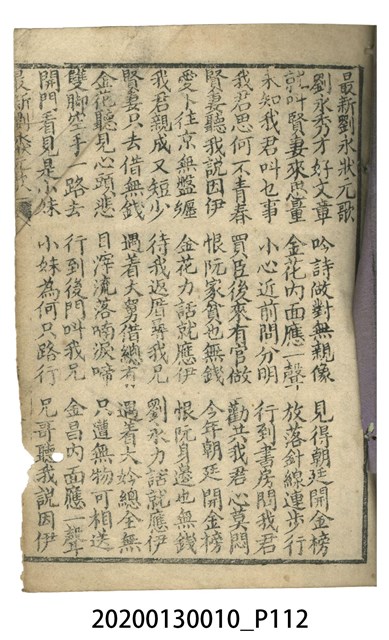 最新劉永狀元歌
劉永秀才好文章 吟詩做對無親像 見得朝廷開金榜
就叫賢妻來思量 金花內面應一聲 放落針線連步行
未知我君叫乜事 小心近前問分明 行到書房問我君
我君思何不青春 買臣後來有官做 勸共我君心莫悶
賢妻聽我說因伊 恨阮家貧也無錢 今年朝廷開金榜
愛卜往京無盤纏 金花力話就應伊 恨阮身邊也無錢
我君親成又短少 待我返厝尋我兄 劉永力話就應伊
賢妻只去借無錢 遇着大舅借總有 遇着大妗總全無
金花聽見心頭悲 目滓流落喃淚啼 只遭無物可相送
雙脚空手一路去 行到後門叫我兄 金昌內面應一聲
開門看見是小妹 小妹為何只路行 兄哥聽我說因伊
最新劉永狀元歌
20200130010_P112